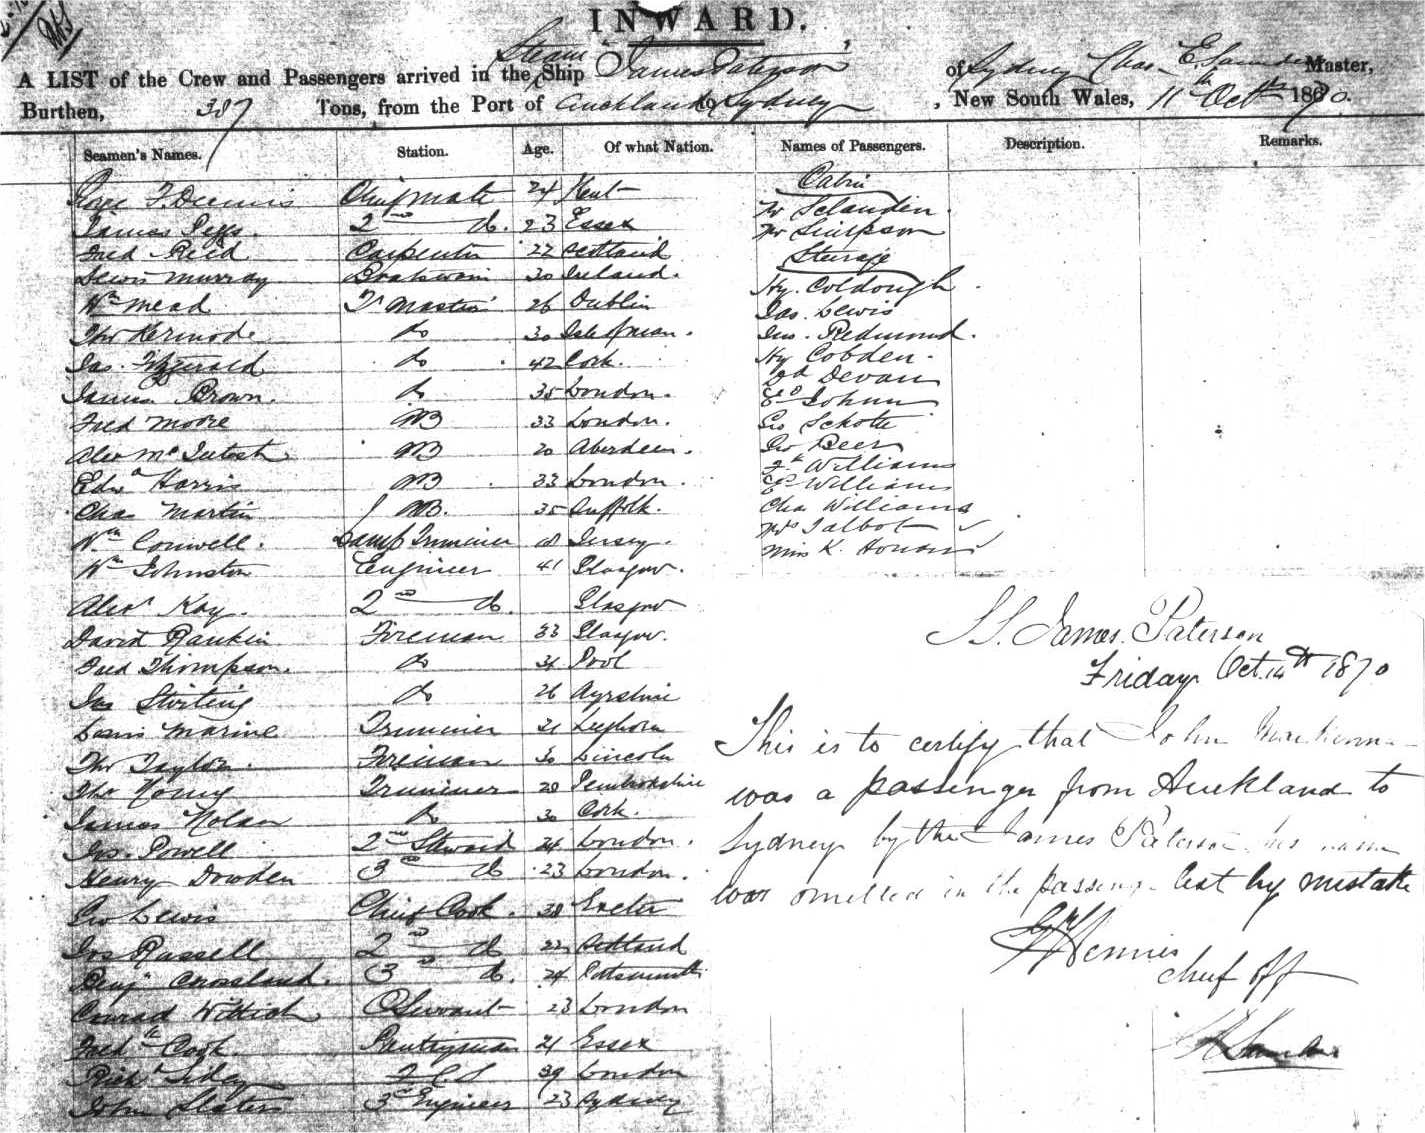 INWARD.
A LIST of the Crew and Passengers arrived in the Steam Ship James Paterson of Sydney Chas. E. Master,
Burthen, 387 Tons, from the Port of Auckland to Sydney, New South Wales, 11th Octr 1870.
Seamen's Names. Station. Age. Of what Nation. Names of Passengers. Description. Remarks.
George F. Dennis Chief mate 24 Kent
James 2nd do. 23 Essex
Fred Reed Carpenter 22 Scotland
Lewis Murray Boatswain 30 Ireland.
Wm Mead 26 Dublin
Thos Kermode do 30 Isle of man.
Jas. Fitzgerald do 42 Cork.
James Brown. do 35 London.
Fred Moore AB 33 London.
Alex McIntosh AB 20 Aberdeen.
Edwd Harris AB 33 London.
Chas Martin AB. 35 Suffolk.
Wm Cornwell. Lamp Trimmer 18 Jersey.
Wm Johnston Engineer 41 Glasgow.
Alexr Kay. 2nd do. Glasgow
David Rankin Fireman 33 Glasgow.
Fred Thompson. do 34 Pool
Jas Stirling do 26 Ayrshire
Louis Marine Trimmer 21 Leghorn
Thos Taylor. Fireman 30 Lincoln
Thos Trimmer 28 Pembrokshire
James Nolan do 30 Cork.
Jos. Powell 2nd Steward 24 London.
Henry Dowden 3rd do 23 London.
Geo Lewis Chief Cook. 38 Exeter
Jos Russell 2nd do 22 Scotland
Benj Crossland. 3rd do. 24 Portsmouth
Conrad Wittich O Servant 23 London
Fredk Cook. Pantryman 21 Essex
Richd F.C.S 39 London
John Slater 3rd Engineer 23 Sydney
Cabin
Mr
Mr Simpson
Steerage
Hy. Coldough
Jas. Lewis
Jno. Redmond.
Hy Cobden.
Devan
Ed Johnn
Geo Schotte
Geo Beer
Fk Williams
Ed Williams
Chas Williams
Mrs Talbot
Miss K. Honan
S.S. James Paterson
Friday Oct. 14th 1870
This is to certify that John
was a passenger from Auckland to
Sydney by the James Paterson his name
was omitted in the passenger list by mistake
Dennis
chief off